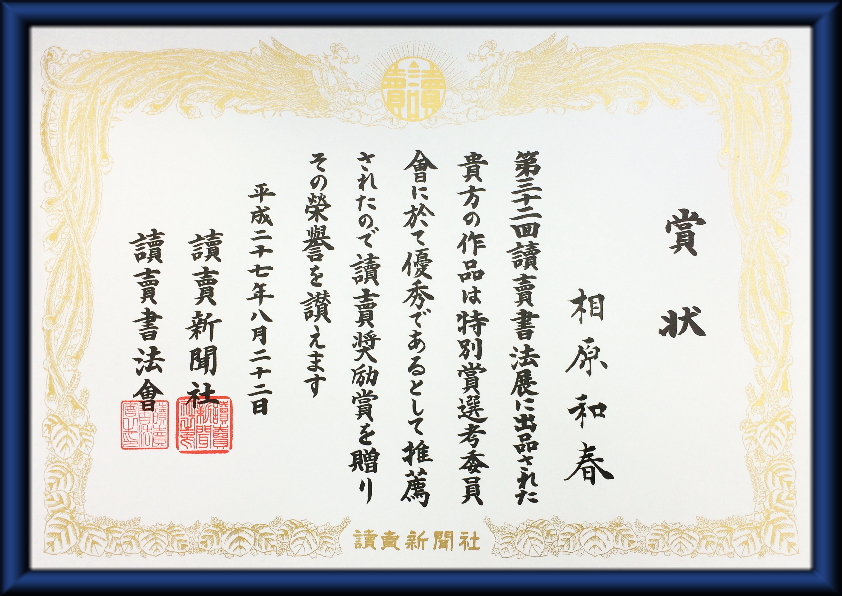 賞状
相原和春
第三十二回讀賣書法展に出品された
貴方の作品は特別賞選考委員
會に於て優秀であるとして推薦
されたので讀賣奨励賞を贈り
その榮譽を讃えます
平成二十七年八月二十二日
讀賣新聞社
讀賣書法會
讀賣新聞社